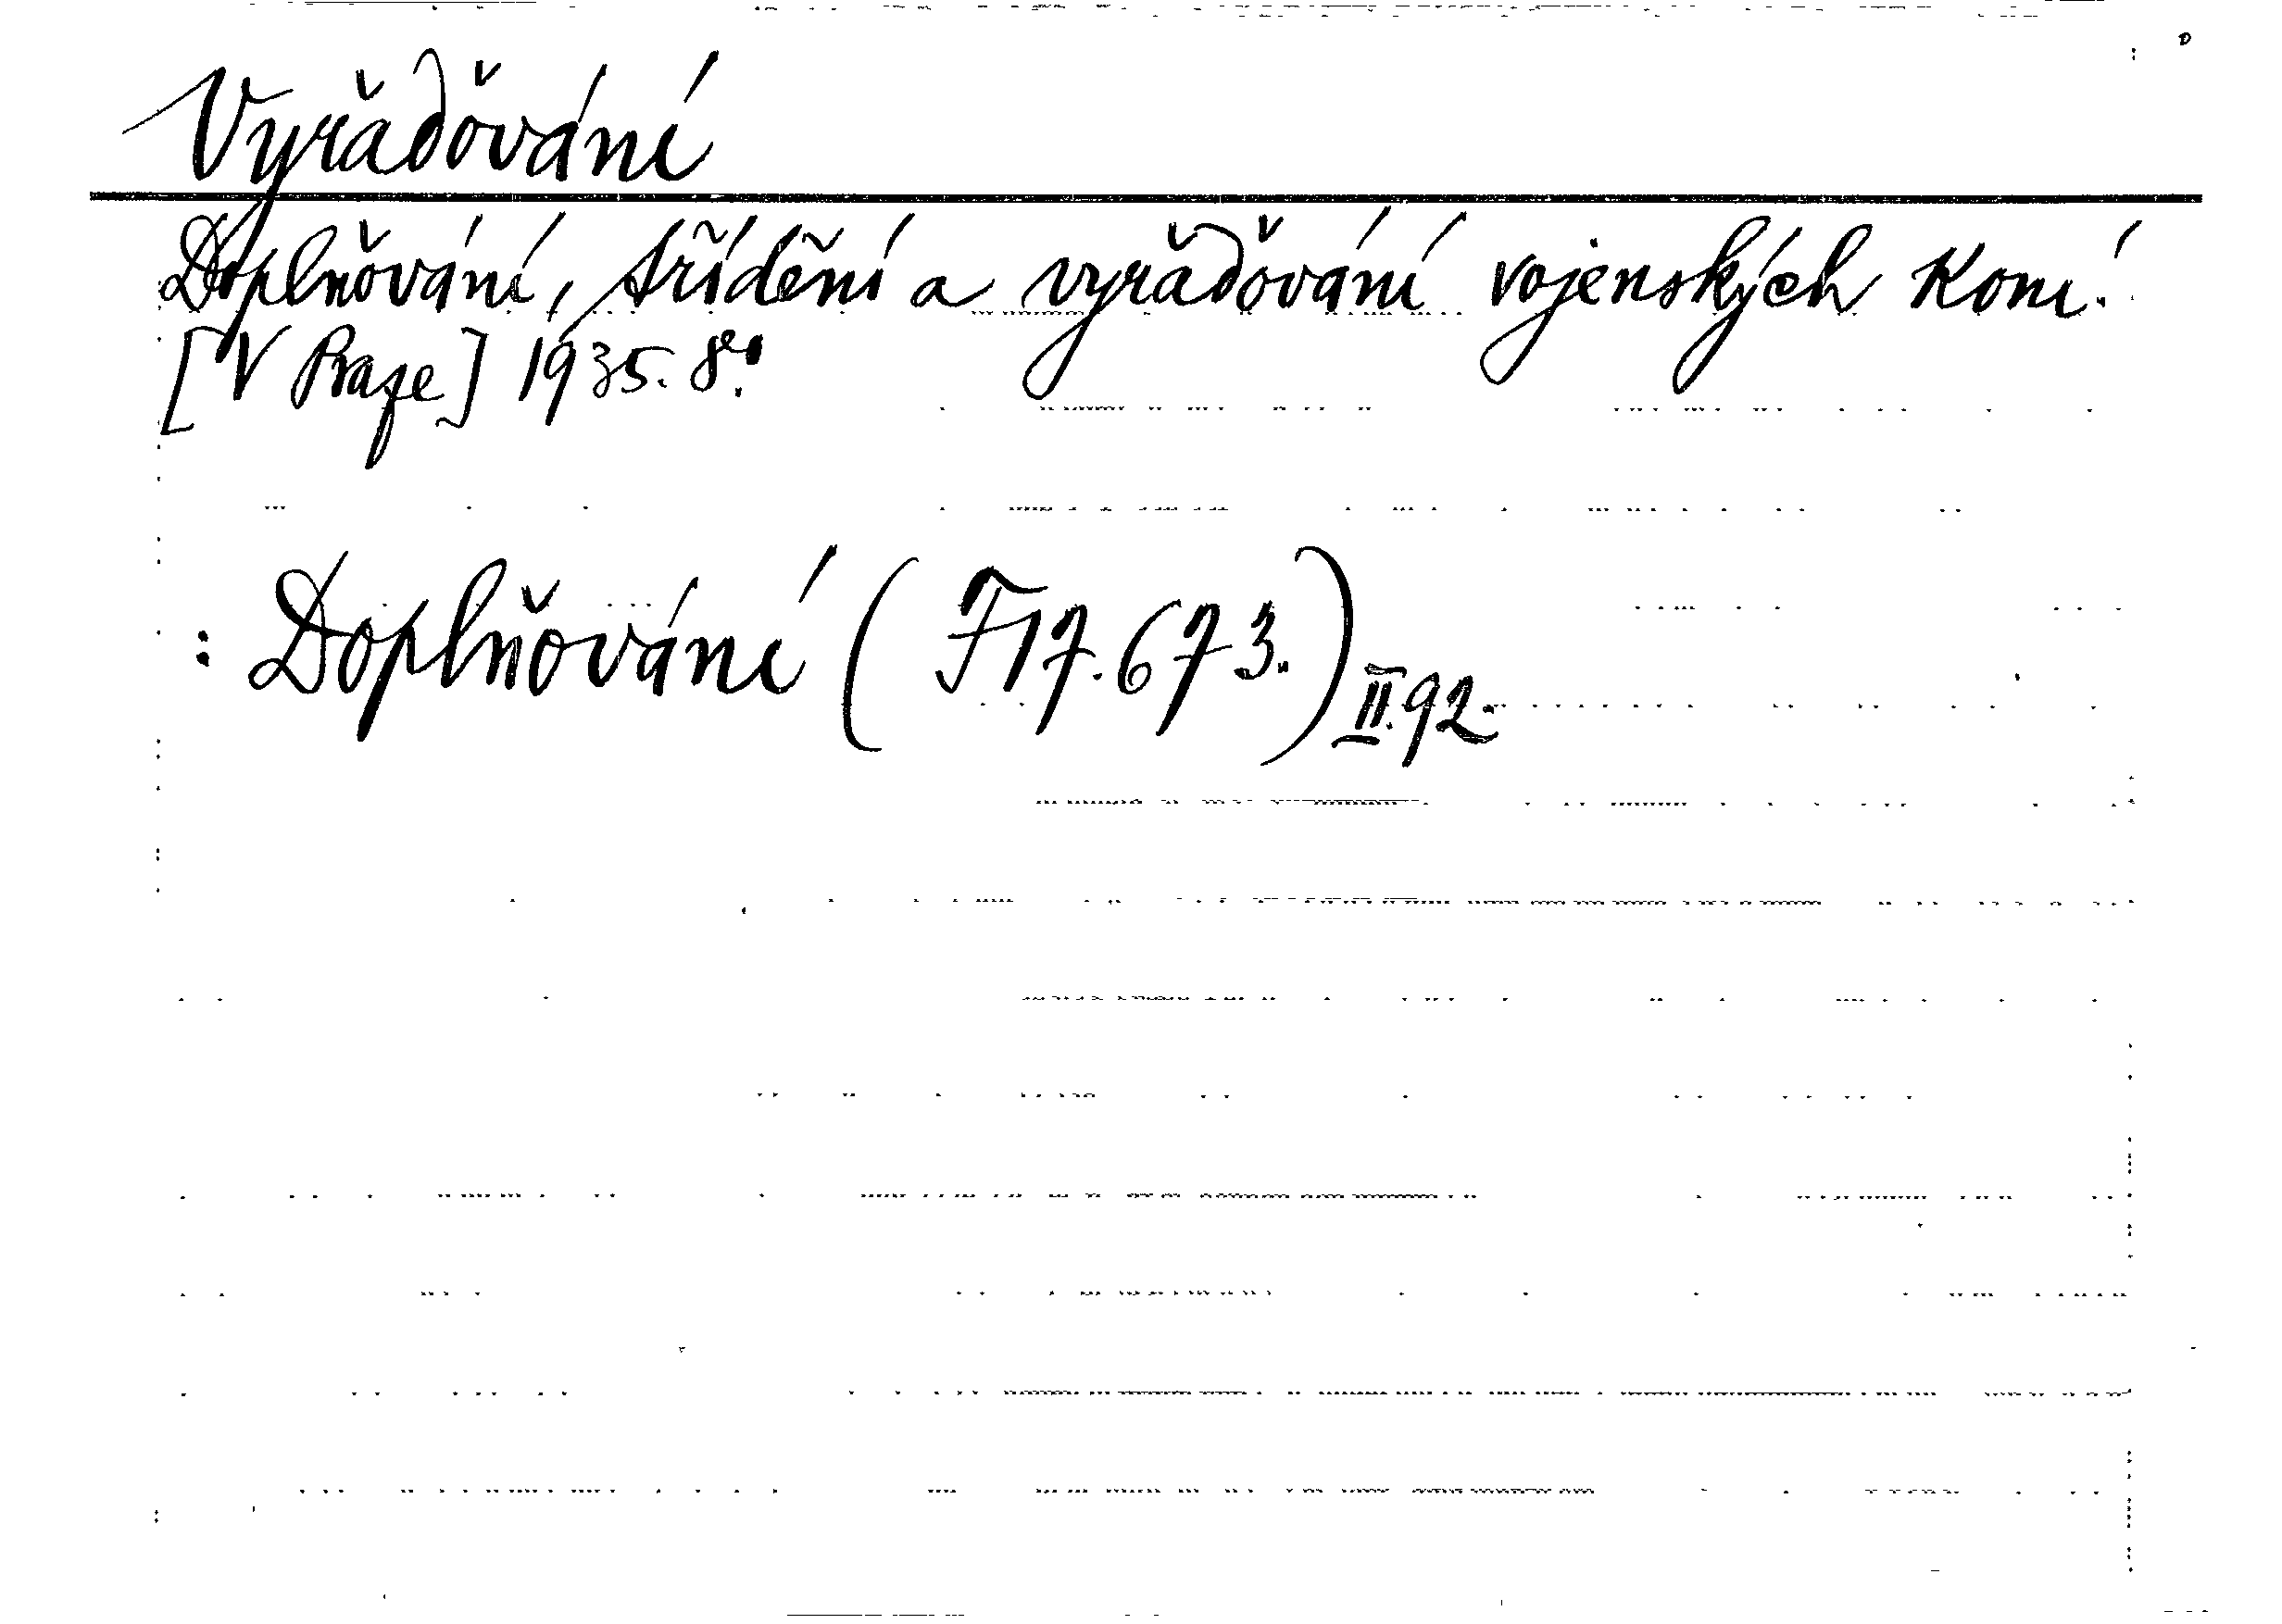 Vyřaďování
Doplňování, třídění a vyřaďování vojenských koní.
[V Praze] 1935. 8°.
: Doplňování (F 17.673.) II.92.